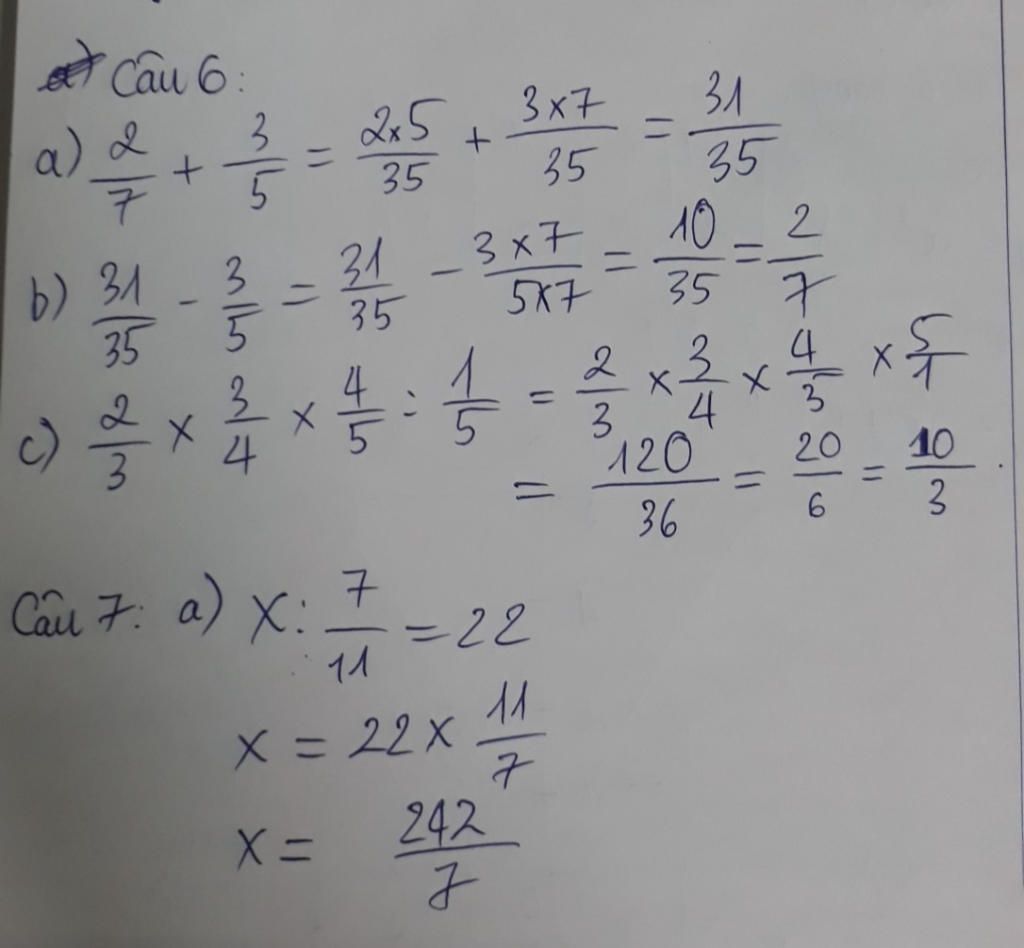 Câu 6:
a) 2/7 + 3/5 = 2x5/35 + 3x7/35 = 31/35
b) 31/35 - 3/5 = 31/35 - 3x7/5x7 = 10/35 = 2/7
c) 2/3 x 3/4 x 4/5 : 1/5 = 2/3 x 3/4 x 4/3 x 5/1
= 120/36 = 20/6 = 10/3.
Câu 7: a) X : 7/11 = 22
x = 22 x 11/7
x = 242/7